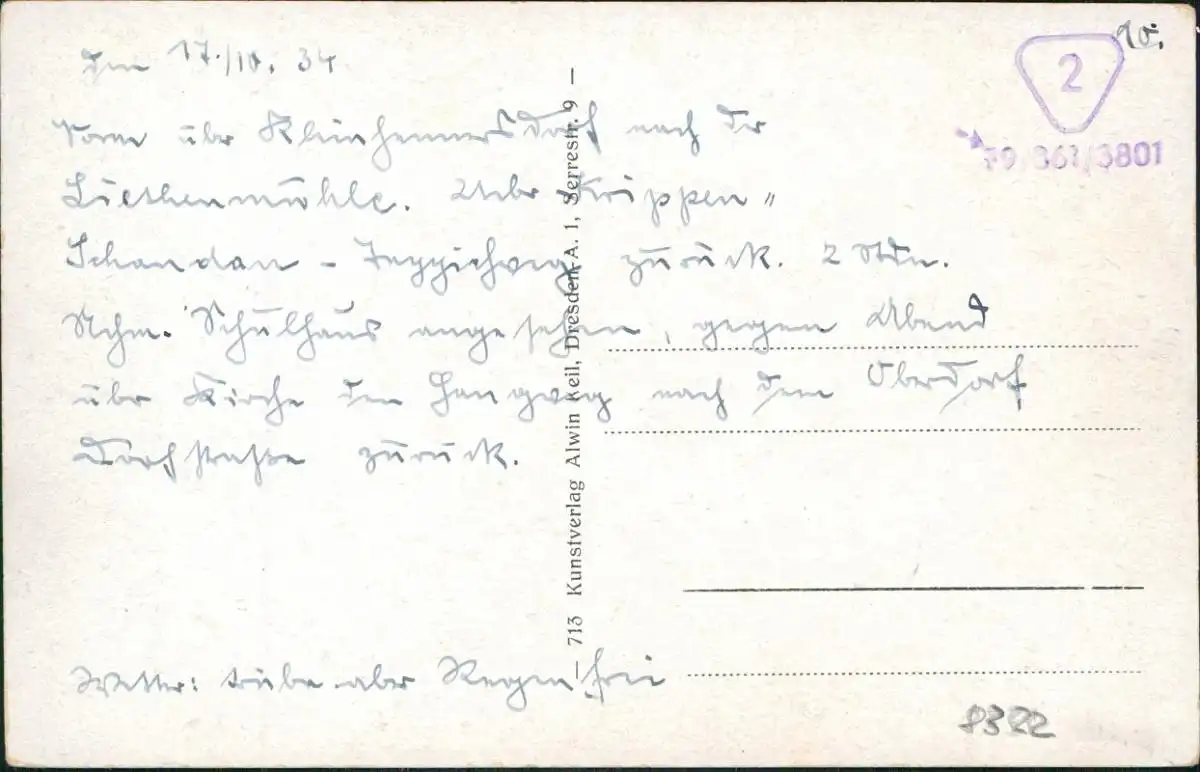 den 17./10. 34
10.
2
79/361/3801
Vorm über Kleinhennersdorf nach der
Liethenmühle. Über Krippen"
Schandau - Teppichweg zurück. 2 Stdn.
Nchm. Schulhaus angesehen, gegen Abend
über Kirche den Hangweg nach dem Oberdorf,
Dorfstraße zurück.
Wetter: trübe aber Regenfrei
— 713 Kunstverlag Alwin Keil, Dresden-A. 1, Serrestr. 9 —
8322